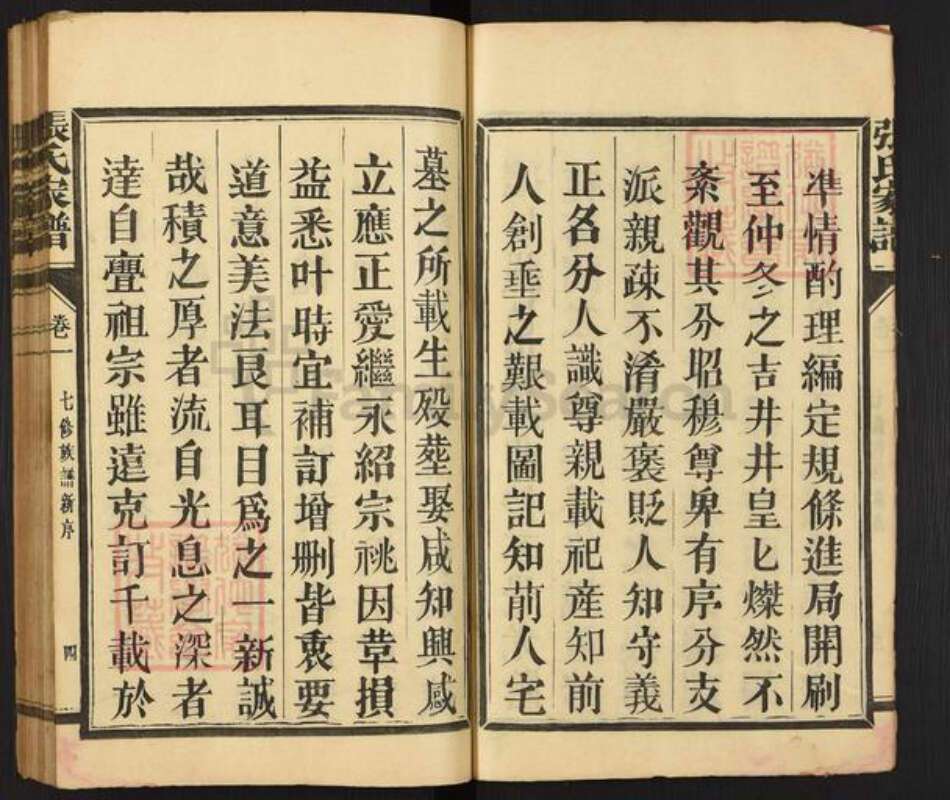 張氏家譜
準情酌理編定規條進局開刷
至仲冬之吉井井皇匕燦然不
紊觀其分昭穆尊卑有序分支
派親疎不淆嚴褒貶人知守義
正各分人識尊親載祀産知前
人創垂之艱載圖記知前人宅
墓之所載生殁塟娶咸知興感
立應正愛繼永紹宗祧因革損
益悉叶時宜補訂增刪皆衷要
道意美法良耳目爲之一新誠
哉積之厚者流自光息之深者
達自亹祖宗雖遠克訂千載於
張氏家譜
卷一
七修族譜新序
四
FamilySearch